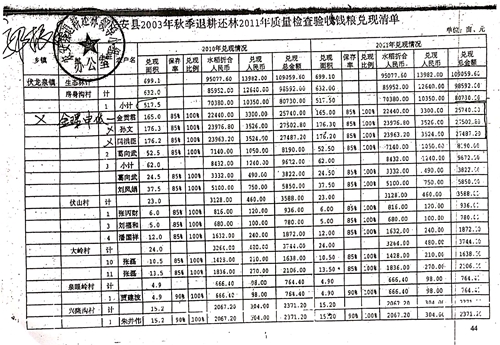 安县2003年秋季退耕还林2011年质量检查验收钱粮兑现清单
单位：亩、元
2010年兑现情况 2011年兑现情况
乡镇 户名 兑现面积 保存率 兑现比例 水粮折合人民币 兑现人民币 兑现总金额 兑现面积 保存率 兑现比例 水粮折合人民币 兑现人民币 兑现总金额
伏龙泉镇 生态林计 699.1 95077.60 13982.00 109059.60 699.10 95077.60 13982.00 109059.60
计 632.0 85952.00 12640.00 98592.00 632.00 85952.00 12640.00 98592.00
1 小计 517.5 70380.00 10350.00 80730.00 517.50 70380.00 10350.00 80730.00
165.0 85% 100% 22440.00 3300.00 25740.00 165.00 85% 100% 22440.00 3300.00 25740.00
孙文 176.3 85% 100% 23976.80 3526.00 27502.80 176.30 85% 100% 23976.80 3526.00 27502.80
176.2 85% 100% 23963.20 3524.00 27487.20 176.20 85% 100% 23963.20 3524.00 27487.20
2 葛向武 52.5 85% 100% 7140.00 1050.00 8190.00 52.50 85% 100% 7140.00 1050.00 8190.00
3 小计 62.0 8432.00 1240.00 9672.00 62.00 8432.00 1240.00 9672.00
葛向武 24.5 85% 100% 3332.00 490.00 3822.00 24.50 85% 100% 3332.00 490.00 3822.00
刘凤娟 37.5 85% 100% 5100.00 750.00 5850.00 37.50 85% 100% 5100.00 750.00 5850.00
伏山村 计 23.0 3128.00 460.00 3588.00 23.00 3128.00 460.00 3588.00
1 6.0 85% 100% 816.00 120.00 936.00 6.00 85% 100% 816.00 120.00 936.00
3 刘福和 5.0 85% 100% 680.00 100.00 780.00 5.00 85% 100% 680.00 100.00 780.00
4 潘国祥 12.0 85% 100% 1632.00 240.00 1872.00 12.00 85% 100% 1632.00 240.00 1872.00
大岭村 计 24.0 3264.00 480.00 3744.00 24.00 3264.00 480.00 3744.00
10 张磊 10.5 85% 100% 1428.00 210.00 1638.00 10.50 85% 100% 1428.00 210.00 1638.00
11 张磊 13.5 85% 100% 1836.00 270.00 2106.00 13.50 85% 100% 1836.00 270.00 2106.00
泉眼岭村 计 4.9 666.40 98.00 764.40 4.90 666.40 98.00 764.40
1 贾建波 4.9 90% 100% 666.40 98.00 764.40 4.90 90% 100% 666.40 98.00 764.40
兴隆沟村 计 15.2 2067.20 304.00 2371.20 15.20 2067.20 304.00 2371.20
1 朱井伟 15.2 90% 100% 2067.20 304.00 2371.20 15.20 90% 100% 2067.20 304.00 2371.20
44